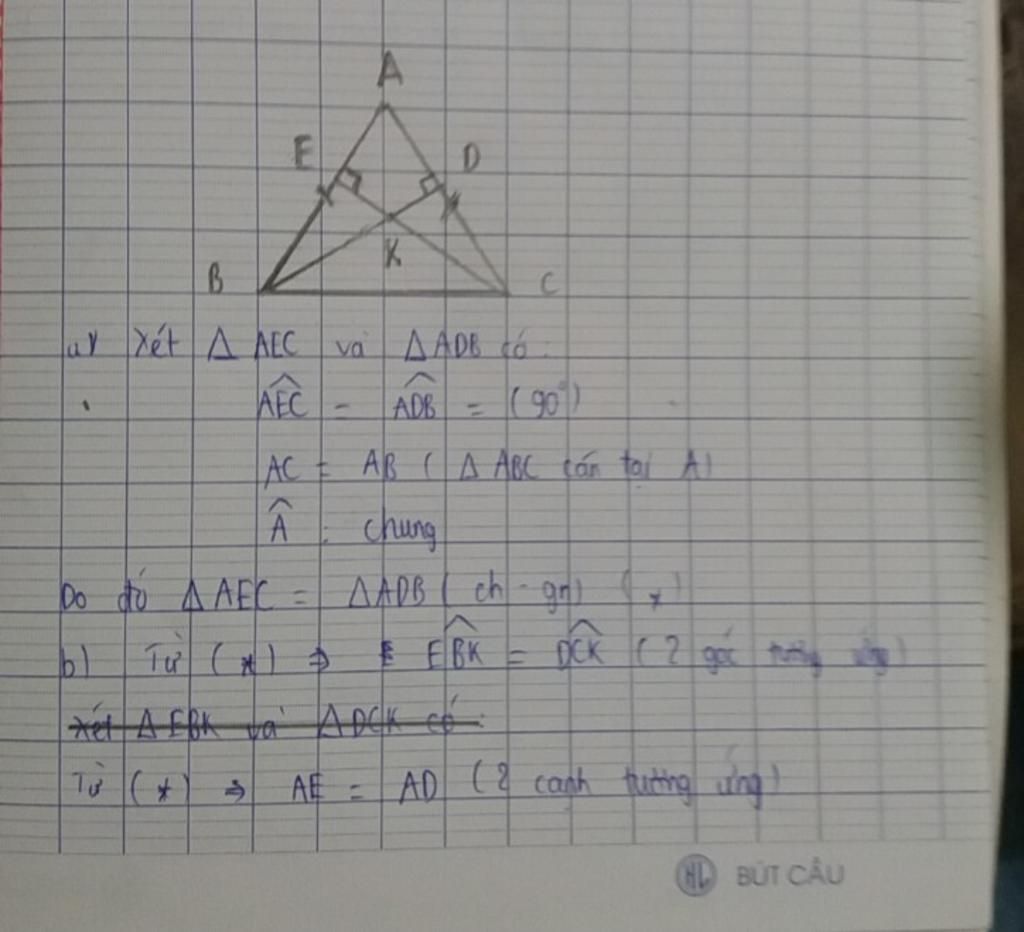 A
E
D
K
B
C
a) Xét Δ AEC và Δ ADB có:
AEC = ADB = (90°)
AC = AB ( Δ ABC cân tại A)
A : chung
Do đó Δ AEC = Δ ADB ( ch - gn) (*)
b) Từ (*) ⇒ EBK = DCK ( 2 góc tương ứng)
Xét Δ EBK và Δ DCK có:
Từ (*) ⇒ AE = AD (2 cạnh tương ứng)
BÚT CÂU